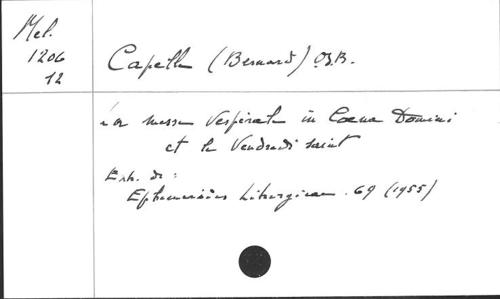 Mel.
1206
12
Capelle (Bernard) O.S.B.
La messe vespérale in Coena Domini
et le Vendredi saint
Extr. de :
Ephemerides Liturgicae. 69 (1955)